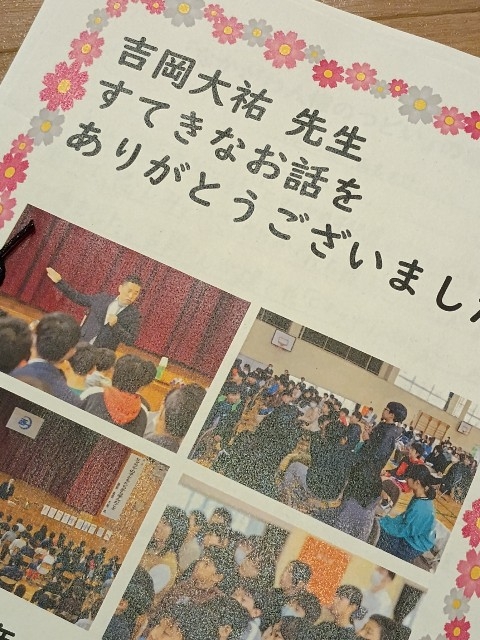 吉岡大祐 先生
すてきなお話を
ありがとうございました